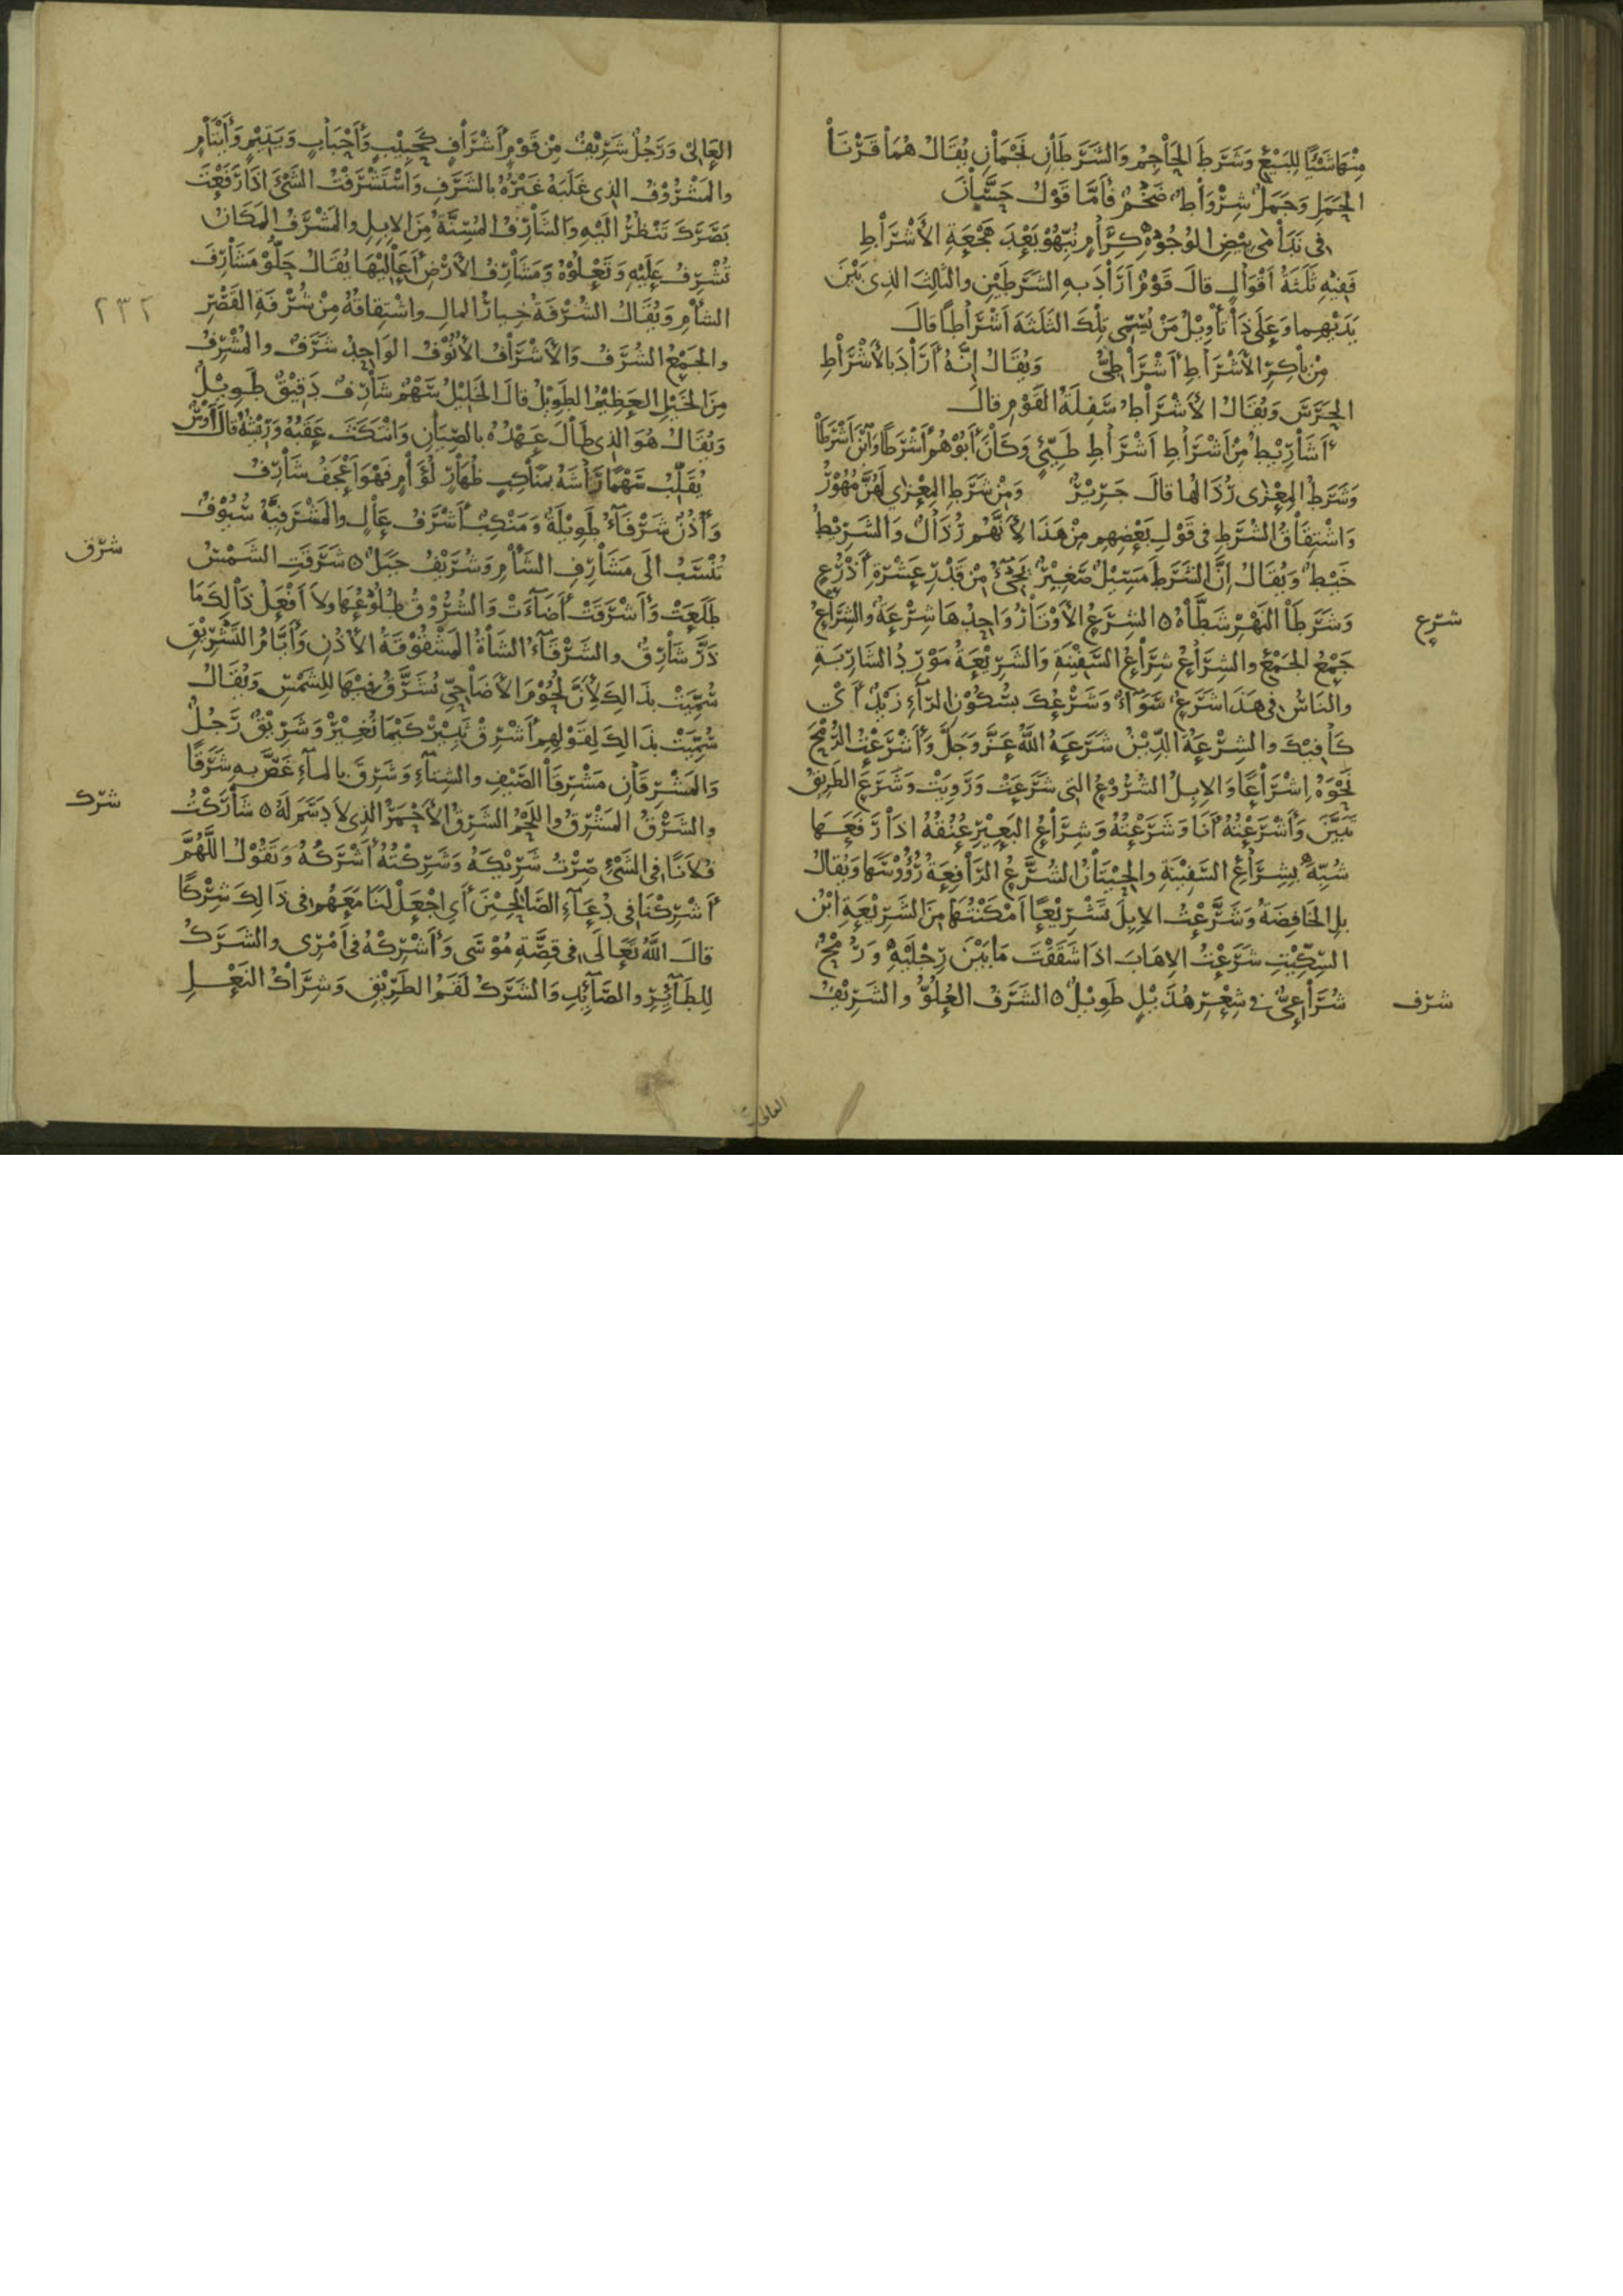 مِنْهَا شَيْئًا لِلْبَيْعِ وَشَرَطَ الحَاجِمُ وَالشَّرَطَانِ نَجْمَانِ يُقَالُ هُمَا قَرْنَا
الحَمَلِ وَجَمَلٌ شِرْوَاطٌ ضَخْمٌ فَأَمَّا قَوْلُ حَسَّانَ
فى نَدَامَى بِيْضِ الوُجُوْهِ كِرَامٍ نُبِّهُوْ بَعْدَ هَجْعَةِ الأَشْرَاطِ
فَفِيْهِ ثَلَثَةُ أَقْوَالٍ قالَ قَوْمٌ أَرَادَ بِهِ الشَّرَطَيْنِ والثَّالِثَ الذِى بَيْنَ
يَدَيْهِما وَعَلَى ذَا تَأْوِيْلُ مَنْ يُسَمِّى تِلْكَ الثَلَثَةَ أَشْرَاطًا قالَ
مِنْ بَاكِرِ الأَشْرَاطِ أَشْرَاطِىُّ وَيُقَالُ إِنَّهُ أَرَادَ بالأَشْرَاطِ
الحَرَسَ وَيُقَالُ الأَشْرَاطُ سَفِلَةُ القَوْمِ قالَ
أَشَارِيْطُ مِنْ أَشْرَاطِ أَشْرَاطِ طَيِّئٍ وَكَانَ أَبُوْهُمْ أَشْرَطًا وَابْنَ أَشْرَطَا
وَشَرَطُ المِعْزَى رُذَالُها قالَ جَرِيْرٌ وَمِنْ شَرَطِ المِعْزَى لَهُنَّ مُهُوْرُ
وَاشْتِقَاقُ الشُّرَطِ فى قَوْلِ بَعْضِهِم مِنْ هَذَا لأَنَّهُم رُذَالٌ وَالشَّرِيْطُ
خَيْطٌ وَيُقَالُ إِنَّ الشَّرَطَ مَسِيْلٌ صَغِيْرٌ يَجِىْءُ مِنْ قَدْرِ عَشْرَةِ أَذْرُعٍ
وَشَرَطَا النَهْرِ شَطَّاهُ ه الشِرَعُ الأَوْتَارُ وَاحِدُهَا شِرْعَةٌ والشِّرَاعُ
شرع
جَمْعُ الجَمْعِ والشِرَاعُ شِرَاعُ السَّفِيْنَةِ وَالشَّرِيْعَةُ مَوْرِدُ الشَارِبَةِ
والنَاسُ فى هَذَا شَرَعٌ سَوَاءٌ وَشَرْعُكَ بِسُكُوْنِ الرَّاءِ زَيْدٌ أَىْ
كَافِيْكَ والشِرْعَةُ الدِّيْنُ شَرَعَهُ اللهُ عَزَّ وَجَلَّ وَأَشْرَعْتُ الرُّمْحَ
نَحْوَهُ إِشْرَاعًا وَالإِبِلُ الشُّرُوْعُ التى شَرَعَتْ وَرَوِيَتْ وَشَرَعَ الطَرِيْقُ
تَبَيَّنَ وَأَشْرَعْتُهُ أَنَا وَشَرَعْتُهُ وَشِرَاعُ البَعِيْرِ عُنُقُهُ إِذَا رَفَعَهَا
شُبِّهَ بِشِرَاعِ السَّفِيْنَةِ والحِيْتَانُ الشُّرَّعُ الرَّافِعَةُ رُؤُوْسَهَا وَيُقالُ
بلِ الخَافِضَةُ وَشَرَّعْتُ الإِبِلَ تَشْرِيْعًا أَمْكَنْتُهَا مِنَ الشَّرِيْعَةِ ابْنُ
السِّكِّيْتِ شَرَعْتُ الإِهَابَ إِذَا شَقَقْتَ مَا بَيْنَ رِجْلَيْهِ وَرُمْحٌ
شُرَاعِىٌّ فى شِعْرِ هُذَيْلٍ طَوِيْلٌ ه الشَّرَفُ العُلُوُّ والشَّرِيْفُ
شرف
العَالِىْ وَرَجُلٌ شَرِيْفٌ مِنْ قَوْمٍ أَشْرَافٍ كَحَبِيْبٍ وَأَحْبَابٍ وَيَتِيْمٍ وَأَيْتَامٍ
والمَشْرُوْفُ الذِى غَلَبَهُ غَيْرُهُ بالشَرَفِ وَاسْتَشْرَفْتُ الشَّىْءَ إِذَا رَفَعْتَ
بَصَرَكَ تَنْظُرُ إِلَيْهِ وَالشَارِفُ المُسِنَّةُ مِنَ الإِبِلِ والمَشْرَفُ المَكَانُ
تُشْرِفُ عَلَيْهِ وَتَعْلُوْهُ وَمَشَارِفُ الأَرْضِ أَعَالِيْهَا يُقَالُ حَلُّوْ مَشَارِفَ
الشَأْمِ وَيُقَالُ الشُرْفَةُ خِيارُ المالِ واشْتِقاقُهُ مِنْ شُرْفَةِ القَصْرِ
٢٣٢
والجَمْعُ الشُرَفُ وَالأَشْرَافُ الأُنُوْفُ الوَاحِدُ شَرَفٌ والمُشْرِفُ
مِنَ الخَيْلِ العَظِيْمُ الطَوِيْلُ قالَ الخَلِيْلُ سَهْمٌ شَارِفٌ دَقِيْقٌ طَوِيْلٌ
وَيُقَالُ هُوَ الذِى طَالَ عَهْدُهُ بالصِيَانِ وَانْتَكَثَ عَقَبُهُ وَرِيْشُهُ قَالَ أَوْسٌ
يُقَلِّبُ سَهْمًا رَاشَهُ بِمَنَاكِبٍ ظُهَارٍ لُؤَامٍ فَهْوَ أَعْجَفُ شَارِفُ
وَأُذُنٌ شَرْفَاءُ طَوِيْلَةٌ وَمَنْكِبٌ أَشْرَفُ عَالٍ والمَشْرَفِيَّةُ سُيُوْفٌ
تُنْسَبُ إِلَى مَشَارِفِ الشَأْمِ وَشُرَيْفٌ جَبَلٌ ه شَرَقَتِ الشَمْسُ
شرق
طَلَعَتْ وَأَشْرَقَتْ أَضَاءَتْ وَالشُرُوْقُ طُلُوْعُهَا ولاَ أَفْعَلُ ذَالِكَ مَا
ذَرَّ شَارِقٌ والشَرْقَاءُ الشَاةُ المَشْقُوْقَةُ الأُذُنِ وَأَيَّامُ التَّشْرِيْقِ
سُمِّيَتْ بذَالِكَ لأَنَّ لُحُوْمَ الأَضَاحِىِّ تُشَرَّقُ فِيْهَا لِلشَّمْسِ وَيُقَالُ
سُمِّيَتْ بذَالِكَ لِقَوْلِهِم أَشْرِقْ ثَبِيْرُ كَيْمَا نُغِيْرُ وَشَرِيْقٌ رَجُلٌ
وَالمَشْرِقَانِ مَشْرِقَا الصَّيْفِ والشِتَاءِ وَشَرِقَ بالمَاءِ غَصَّ بهِ شَرَقًا
والشَرْقُ المَشْرِقُ واللَّحْمُ الشَرِقُ الأَحْمَرُ الذِى لاَ دَسَمَ لَهُ ه شَارَكْتُ
شرك
فُلاَنًا فى الشَىْءِ صِرْتُ شَرِيْكَهُ وَشَرِكْتُهُ أَشْرَكُهُ وَتَقُوْلُ اللَّهُمَّ
أَشْرِكْنَا فى دُعَاءِ الصَّالِحِيْنَ أَىِ اجْعَلْ لَنَا مَعَهُم فى ذَالِكَ شِرْكًا
قالَ اللهُ تَعَالَى فى قِصَّةِ مُوْسَى وَأَشْرِكْهُ فى أَمْرِى والشَرَكُ
لِلطَّائِرِ والصَّائِدِ وَالشَّرَكُ لَقَمُ الطَرِيْقِ وَشِرَاكُ النَعْلِ
العالى